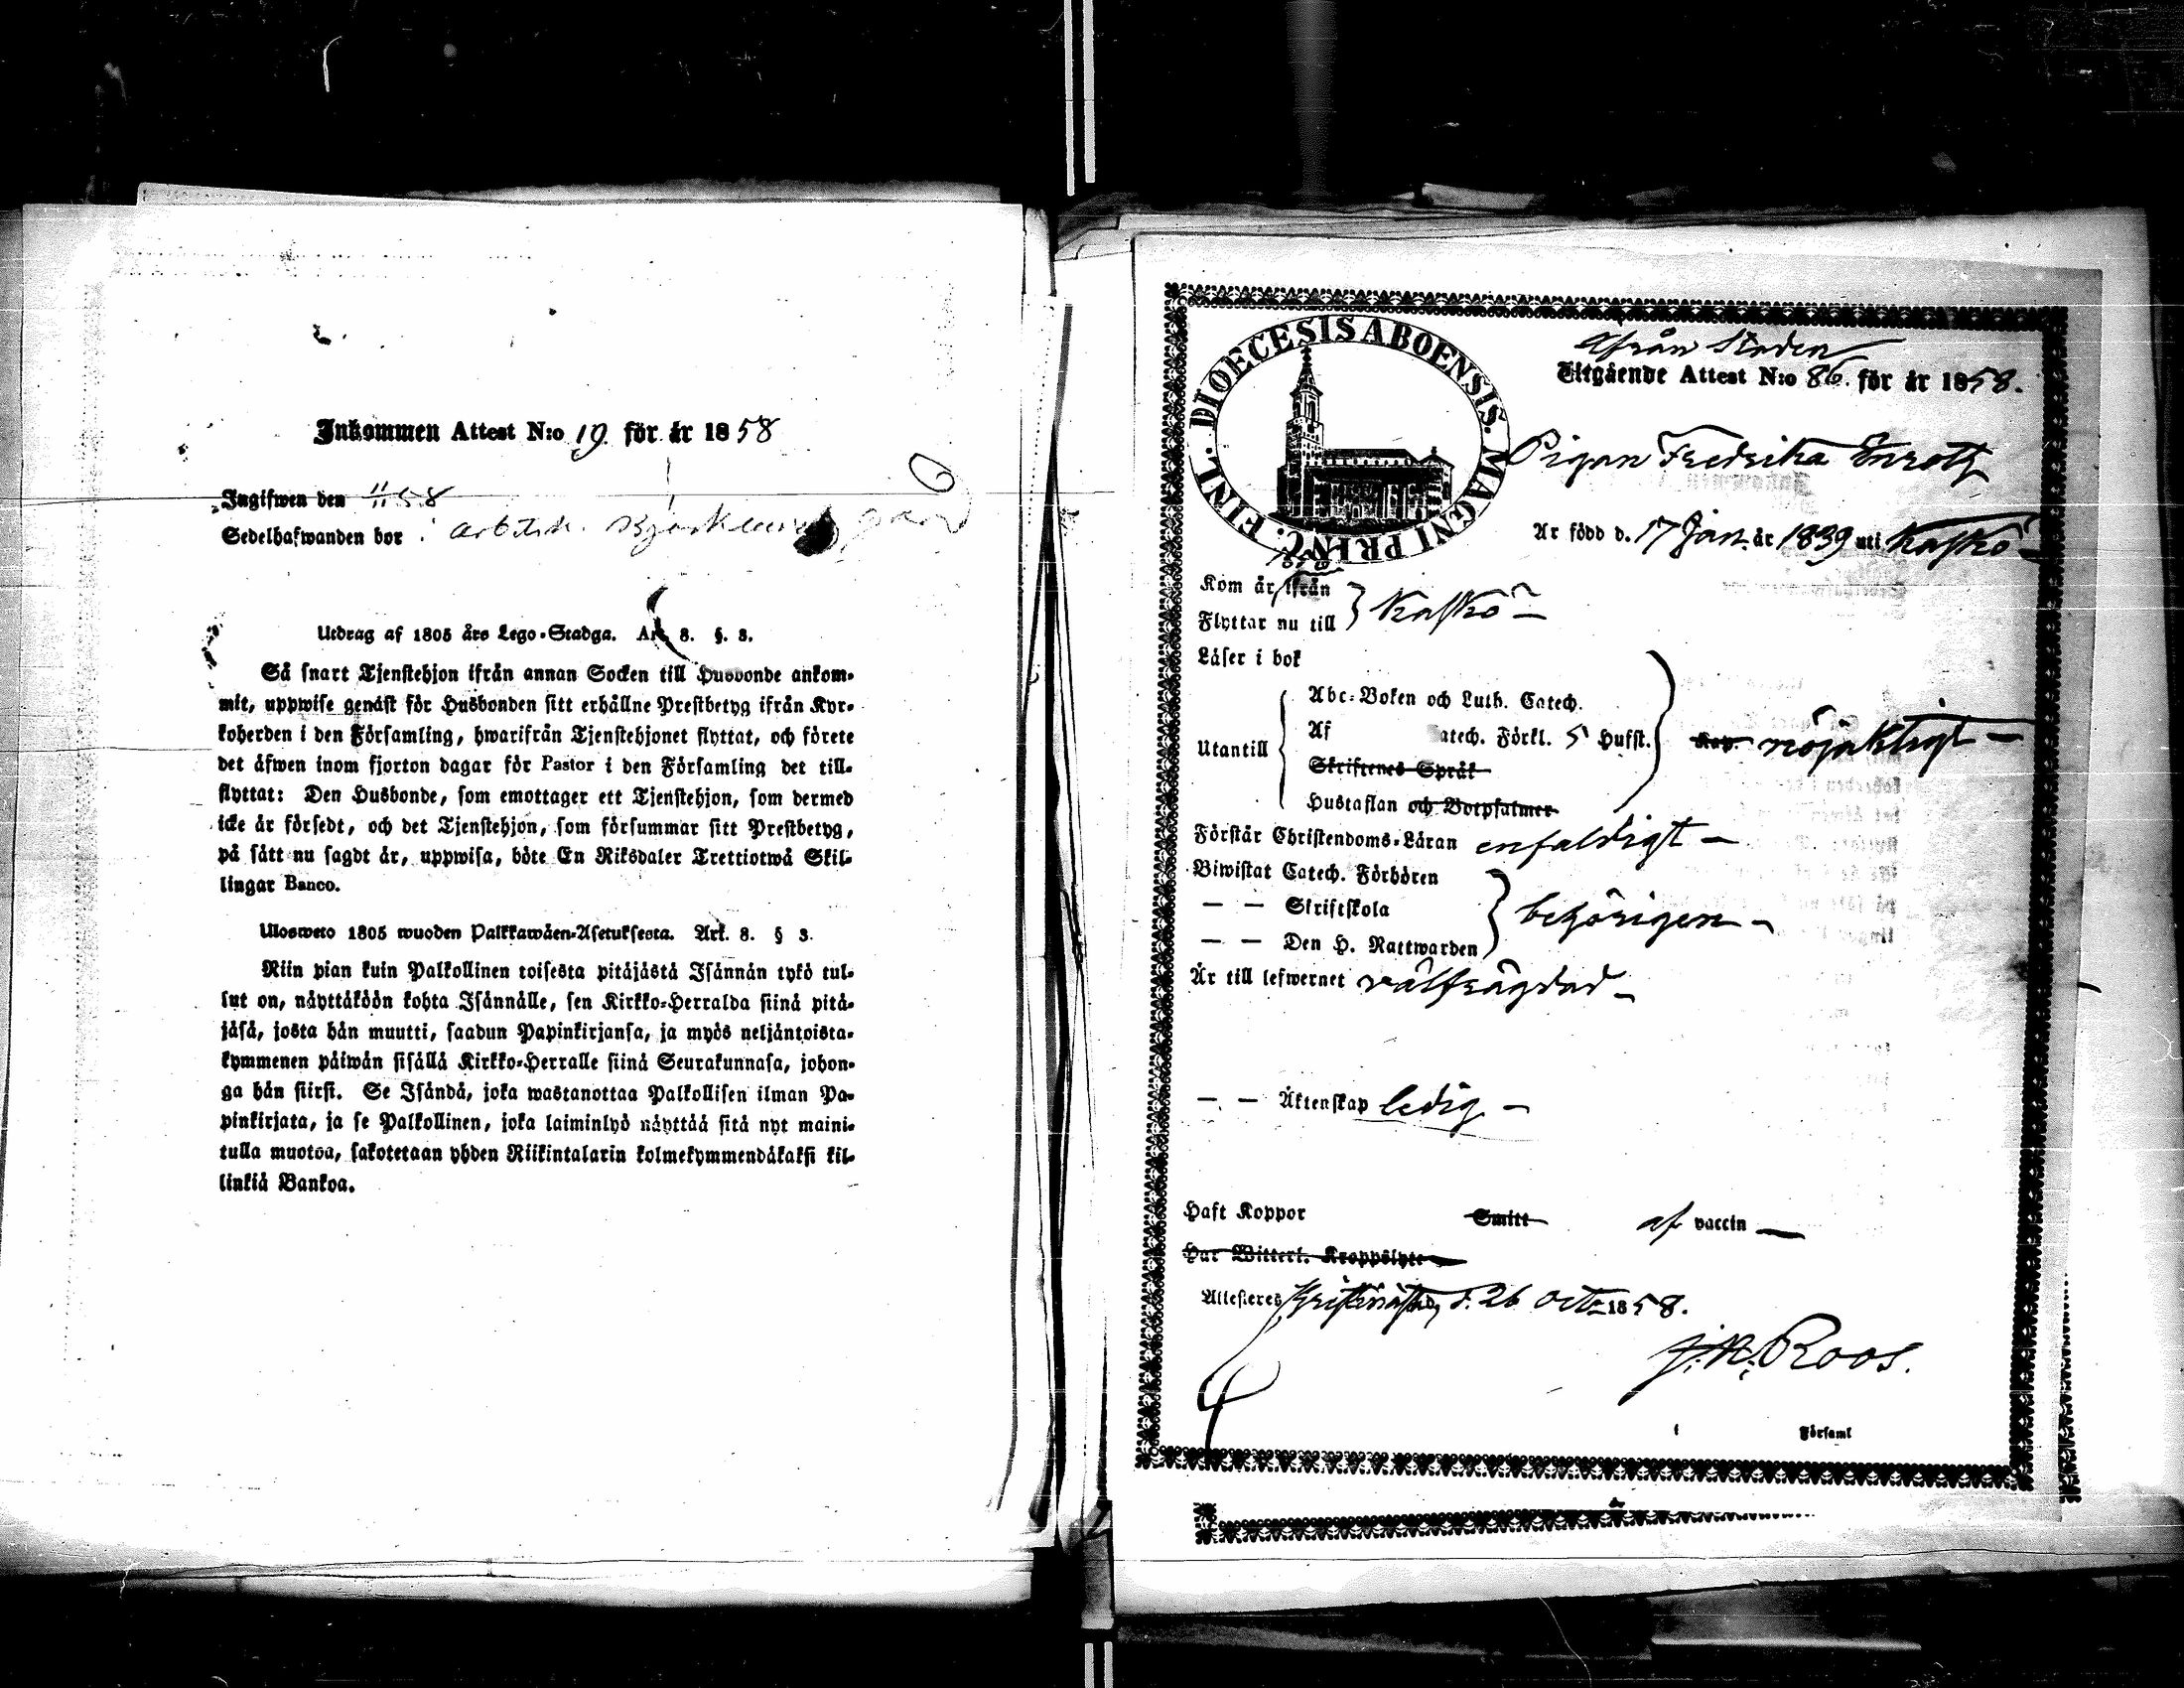 Inkommen Attest N:o 19. för år 1858
Ingifwen den
Sedelhafwanden bor i arbetsk.
Utdrag af 1805 års Lego-Stadga. Art. 8. §. 3.
Så snart Tjenstehjon ifrån annan Socken till Husbonde ankom-
mit, uppwise genast för Husbonden sitt erhållne Prestbetyg ifrån Kyr-
koherden i den Församling, hwarifrån Tjenstehjonet flyttat, och förete
det äfwen inom fjorton dagar för Pastor i den Församling det till-
flyttat: Den Husbonde, som emottager ett Tjenstehjon, som dermed
icke är försedt, och det Tjenstehjon, som försummar sitt Prestbetyg,
på sätt nu sagdt är, uppwisa, böte En Riksdaler Trettiotwå Skil-
lingar Banco.
Ulosweto 1805 wuoden Palkkawäen-Asetuksesta. Art. 8. § 3.
Niin pian kuin Palkollinen toisesta pitäjästä Isännän tykö tul-
lut on, näyttäköön kohta Isännälle, sen Kirkko-Herralda siinä pitä-
jäsä, josta hän muutti, saadun Papinkirjansa, ja myös neljäntoista-
kymmenen päiwän sisällä Kirkko-Herralle siinä Seurakunnasa, johon-
ga hän siirsi. Se Isändä, joka wastanottaa Palkollisen ilman Pa-
pinkirjata, ja se Palkollinen, joka laiminlyö näyttää sitä nyt maini-
tulla muotoa, sakotetaan yhden Riikintalarin kolmekymmendäkaksi kil-
linkiä Bankoa.
DIOECESIS ABOENSIS. MAGNI PRINC. FINL.
ifrån Staden
Utgående Attest N:o 86. för år 1858.
Pigan Fredrika Enroth
Är född d. 17 Jan. år 1839 uti Kaskö
Kom år ifrån
Flyttar nu till } Kaskö
Läser i bok
Abc-Boken och Luth. Catech.
Utantill Af atech. Förkl. 5 Hufst. nöjaktigt
Skriftenes Språk
Hustaflan och Botpsalmer
Förstår Christendoms-Läran enfaldigt
Biwistat Catech. Förhören
— — Skriftskola } behörigen
— — Den H. Nattwarden
Är till lefwernet välfrägdad
— — Äktenskap ledig
Haft Koppor Smitt af vaccin
Har Witterl. Kroppslyte
Attesteres Kristinestad, d. 26 Oct. 1858.
J. N. Roos.
i Församl